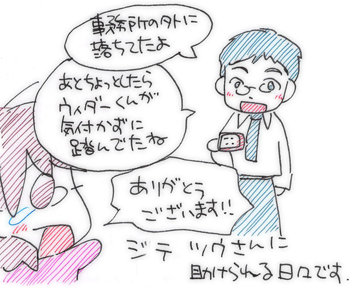 事務所の外に
落ちてたよ
あとちょっとしたら
ウィダーくんが
気付かずに
踏んでたね
ありがとう
ございます!!
ジテツウさんに
助けられる日々です.